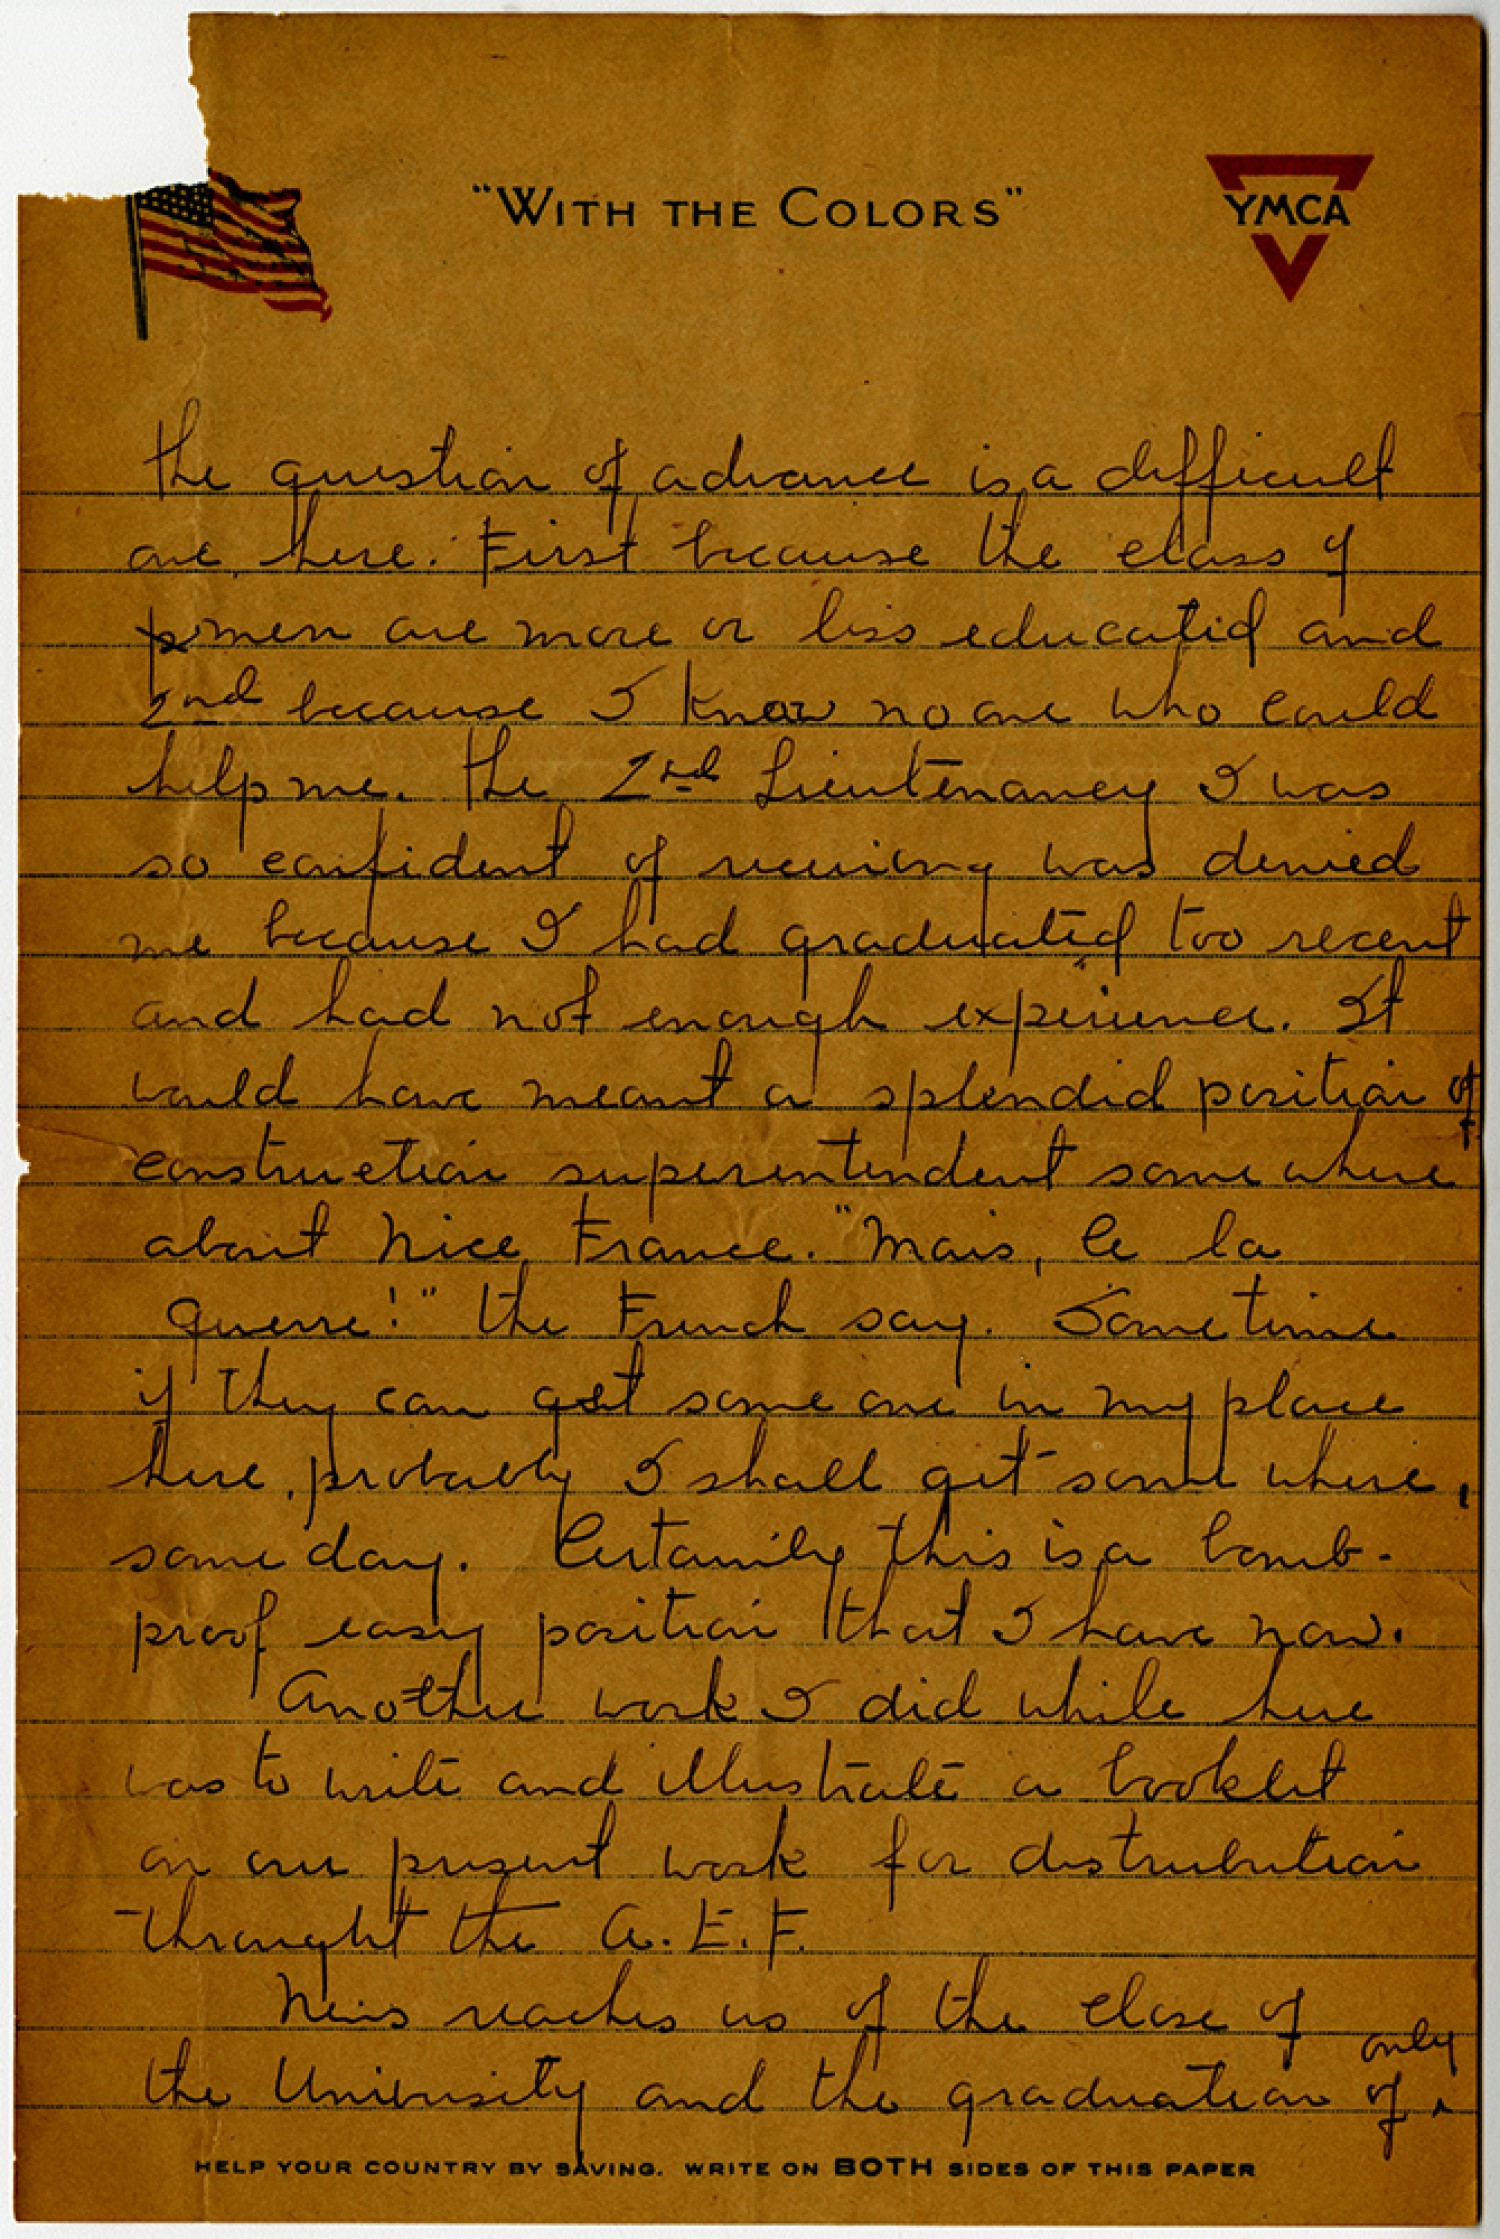 "WITH THE COLORS"
YMCA
the question of advance is a difficult
one here. First because the class of
men are more or less educated and
2nd because I know no one who could
help me. The 2nd Lieutenancy I was
so confident of receiving was denied
me because I had graduated too recent
and had not enough experience. It
would have meant a splendid position of
construction superintendent some where
about Nice France. "Mais, le la
guerre!" the French say. Sometime
if they can get some one in my place
here, probably I shall get some where,
some day. Certainly this is a bomb-
proof easy position that I have now.
Another work I did while here
was to write and illustrate a booklet
on our present work for distrubution
throught the A.E.F.
News reaches us of the close of
the University and the graduation of only
HELP YOUR COUNTRY BY SAVING. WRITE ON BOTH SIDES OF THIS PAPER